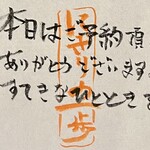 本日はご予約頂
ありがとうございます
すてきなひとときを